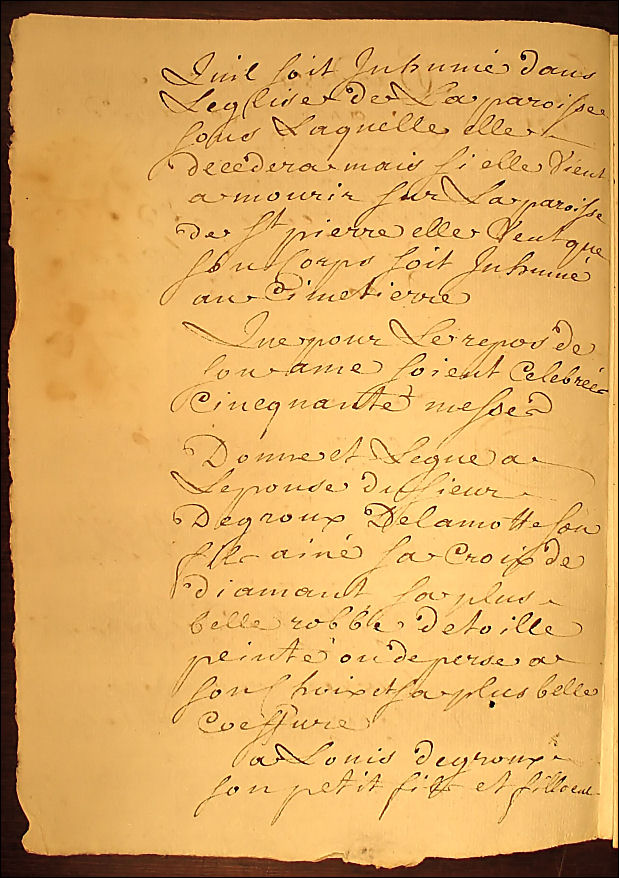 Quil soit Inhumé dans
Leglise de La paroisse
sous Laquelle elle
decedera mais si elle vient
a mourir sur La paroisse
de st pierre elle veut que
son Corps soit Inhumé
au Cimetierre
Que pour Le repos de
son ame soient Celebrée
Cincquante messe
Donne et Legue a
Lepouse du sieur
Degroux Delamotte son
fils ainé sa Croix de
diamant sa plus
belle robbe detoille
peinte ou de perse a
son Choix et sa plus belle
Coeffure
a Louis degroux
son petit fils et filloeul